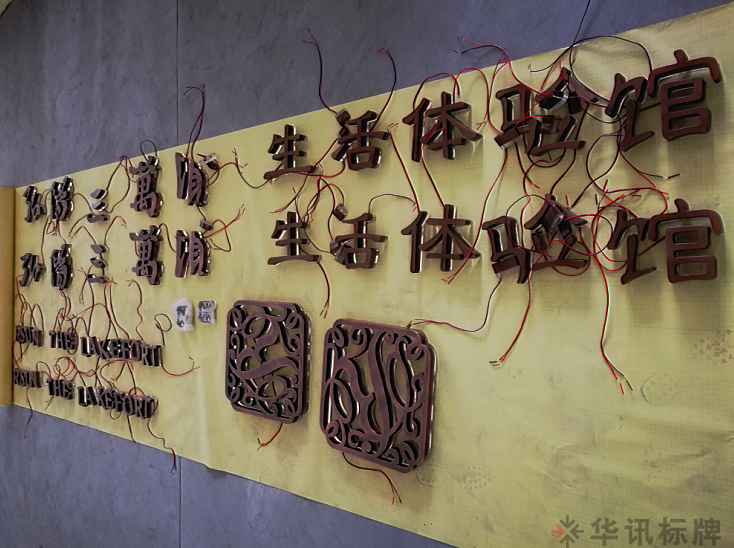 弘陽三萬頃 生活体验馆
弘陽三萬頃 生活体验馆
RSUN THE LAKEFORT
RSUN THE LAKEFORT
华讯标牌